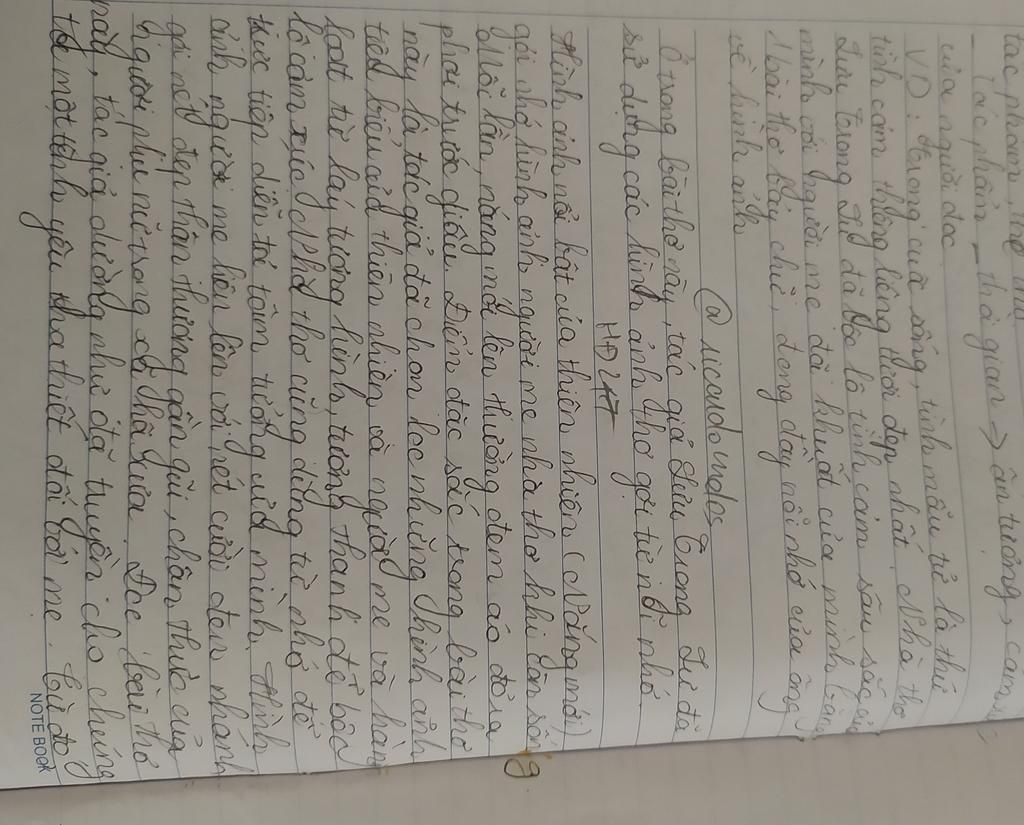 tác phẩm, nhà thơ
- Tác phẩm - thời gian → ấn tượng, cảm
của người đọc
VD: Trong cuộc sống, tình mẫu tử là thứ
tình cảm thiêng liêng tươi đẹp nhất. Nhà thơ
Lưu Trọng Lư đã đưa là tình cảm sâu sắc của
mình với người mẹ đã khuất của mình bằng
1 bài thơ bảy chữ, đong đầy nỗi nhớ của ông
về hình ảnh
@ micardo mdos
Ở trong bài thơ này, tác giả Lưu Trọng Lư đã
sử dụng các hình ảnh thơ gợi từ nỗi nhớ.
Hình ảnh nổi bật của thiên nhiên (Nắng mới)
gợi nhớ hình ảnh người mẹ nhà thơ khi còn sống
Mỗi lần nắng mới lên thường đem áo đỏ ra
phơi trước giậu. Điểm đặc sắc trong bài thơ
này là tác giả đã chọn lọc những hình ảnh
tiêu biểu của thiên nhiên và người mẹ và hàng
loạt từ láy tượng hình, tượng thanh để bộc
lộ cảm xúc. Nhà thơ cũng dùng từ nhớ để
trực tiếp diễn tả tâm tưởng của mình. Hình
ảnh người mẹ hiện lên với nét cười đen nhánh
gợi nét đẹp thân thương gần gũi, chân thực của
người phụ nữ trong xã hội xưa. Đọc bài thơ
này, tác giả dường như đã truyền cho chúng
ta một tình yêu tha thiết đối với mẹ. Từ đó
NOTEBOOK